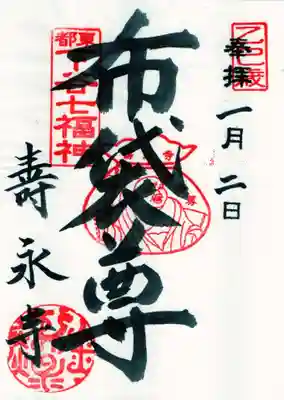 乙巳歳
奉拝
一月二日
東都
下谷七福神
布袋尊
壽永寺